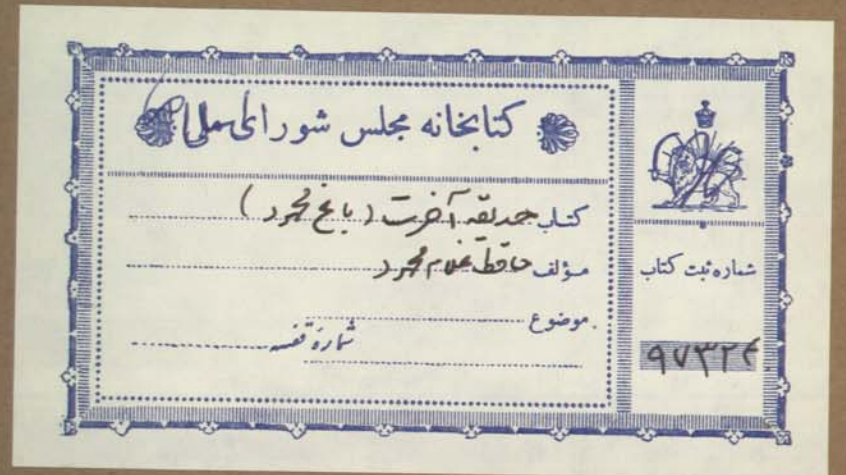 کتابخانه مجلس شورای ملی
کتاب حدیقه آخرت (باغ محمود)
مؤلف حافظ غلام محمود
موضوع
شماره قفسه
شماره ثبت کتاب
۹۷۳۲۴